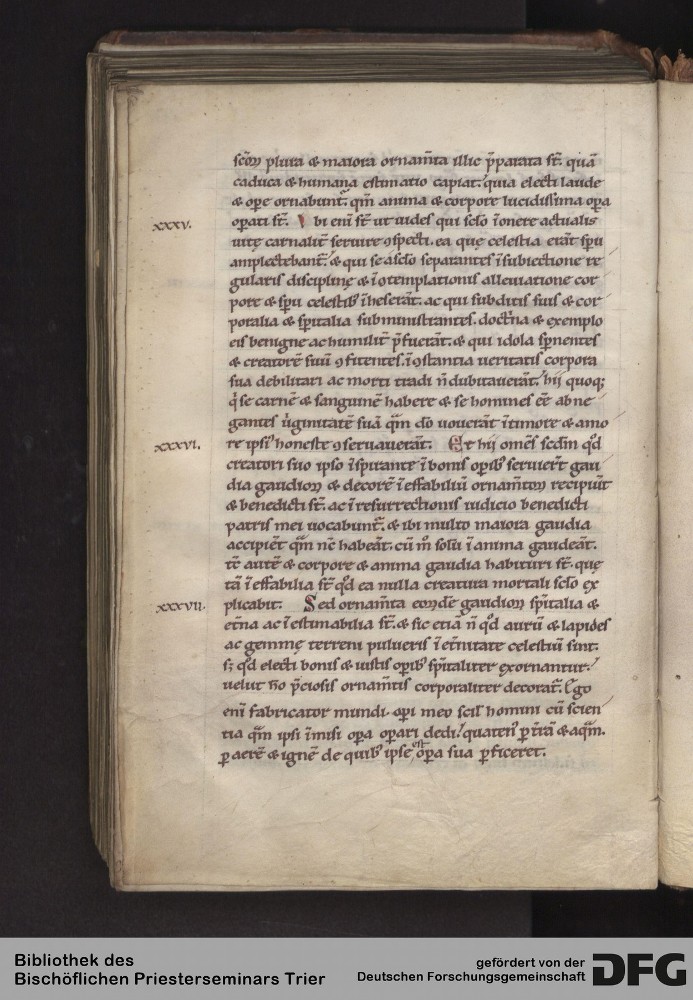 sc̄oȝ plura & maiora ornam̄ta illic p̄parata st̄. quā
caduca & humana estimatio capiat. quia electi laude
& ope ornabunt̄. qm̄ anima & corpore lucidissima opa
xxxv. opati st̄. Ibi eni st̄ ut uides qui sc̄lo ī onere actualis
uitę carnalit̄ seruire ꝯspecti. ea quę celestia erāt sp̄u
amplectebant̄. & qui se a sc̄lo separantes ī subiectione re
gularis disciplinę & ī ꝯtemplationis alleuiatione cor
pore & sp̄u celestib; īheserāt. ac qui subditis suis & cor
poralia & sp̄italia subministrantes. doct̄na & exemplo
eis benigne ac humilit̄ p̄fuerāt. & qui idola sp̄nentes
& creatorē suū ꝯfitentes. ī ꝯstantia ueritatis corpora
sua debilitari ac morti tradi n̄ dubitauerāt. hii quoq;
q̇ se carnē & sanguinē habere & se homines eē abne
gantes ůginitatē suā qm̄ dō uouerāt ī timore & amo
xxxvi. re ipsi' honeste ꝯseruauerāt. Et hii omēs sc̄dm qd̄
creatori suo ipso īspirante ī bonis opib; seruiert̄ gau
dia gaudioȝ & decorē ī effabiliū ornam̄toȝ recipiūt
& benedicti st̄. ac ī resurrectionis iudicio benedicti
patris mei uocabunt̄. & ibi multo maiora gaudia
accipiēt qm̄ nc̄ habeāt. cū m̊ solū ī anima gaudeāt.
tc̄ autē & corpore & anima gaudia habituri st̄. quę
tā ī effabilia st̄ qd̄ ea nulla creatura mortali sc̄lo ex
xxxvii. plicabit. Sed ornam̄ta eoȝdē gaudioȝ sp̄italia &
et̄na ac ī estimabilia st̄. & sic etiā n̄ qd̄ aurū & lapides
ac gemmę terreni pulueris ī et̄nitate celestiū sint.
s; qd̄ electi bonis & iustis opib; sp̄italiter exornantur.
uelut ho p̄ciosis ornam̄tis corporaliter decorat̄. Ego
eni fabricator mundi. opi meo scil' homini cū scien
tia qm̄ ipsi īmisi opa opari dedi. quaten' p t̄rā & aqm̄.
p aerē & ignē de quib; ipse est opa sua pficeret.
Bibliothek des
Bischöflichen Priesterseminars Trier
gefördert von der
Deutschen Forschungsgemeinschaft
DFG